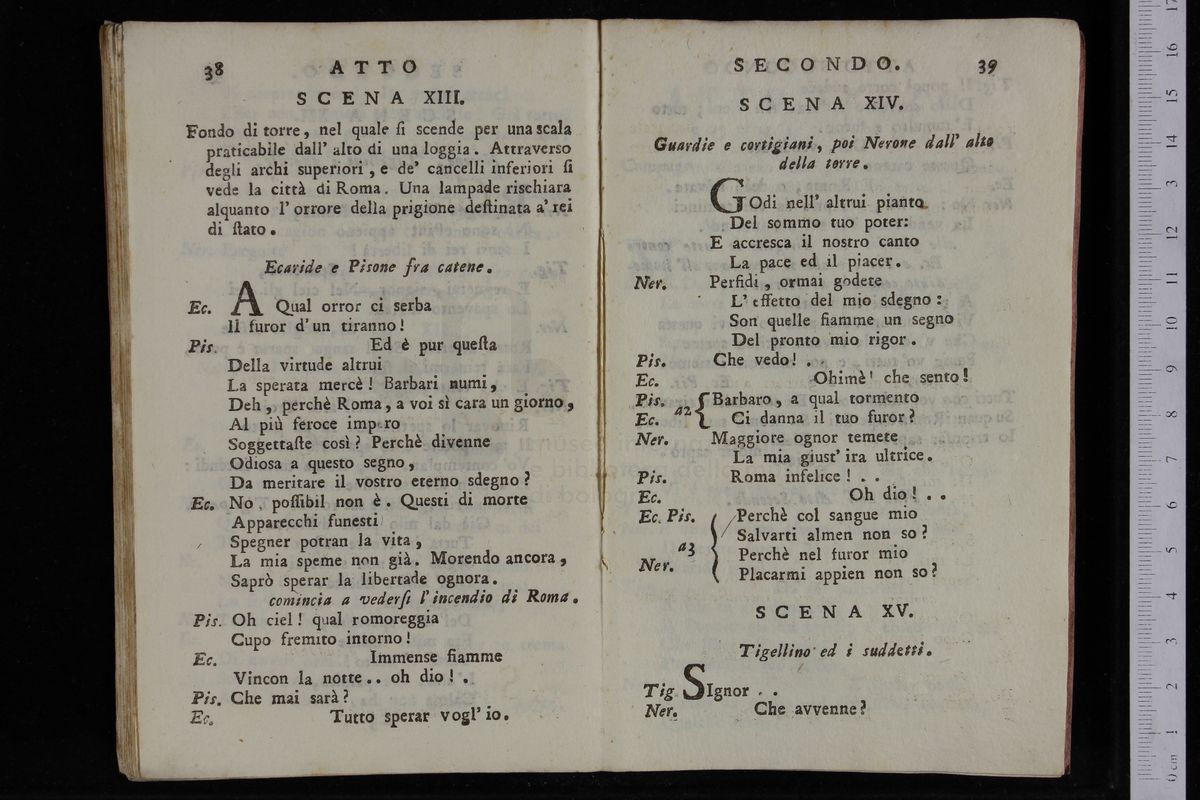 38 ATTO
SCENA XIII.
Fondo di torre, nel quale ſi scende per una scala
praticabile dall' alto di una loggia. Attraverso
degli archi superiori, e de' cancelli inferiori ſi
vede la città di Roma. Una lampade rischiara
alquanto l'orrore della prigione deſtinata a' rei
di ſtato.
Ecaride e Pisone fra catene.
Ec. A Qual orror ci serba
Il furor d'un tiranno!
Pis. Ed è pur queſta
Della virtude altrui
La sperata mercè! Barbari numi,
Deh, perchè Roma, a voi sì cara un giorno,
Al più feroce impero
Soggettaſte così? Perchè divenne
Odiosa a questo segno,
Da meritare il vostro eterno sdegno?
Ec. No, poſſibil non è. Questi di morte
Apparecchi funesti
Spegner potran la vita,
La mia speme non già. Morendo ancora,
Saprò sperar la libertade ognora.
comincia a vederſi l'incendio di Roma.
Pis. Oh ciel! qual romoreggia
Cupo fremito intorno!
Ec. Immense fiamme
Vincon la notte.. oh dio!.
Pis. Che mai sarà?
Ec. Tutto sperar vogl'io.
SECONDO. 39
SCENA XIV.
Guardie e cortigiani, poi Nerone dall' alto
della torre.
GOdi nell' altrui pianto
Del sommo tuo poter:
E accresca il nostro canto
La pace ed il piacer.
Ner. Perfidi, ormai godete
L'effetto del mio sdegno:
Son quelle fiamme un segno
Del pronto mio rigor.
Pis. Che vedo! .
Ec. Ohimè! che sento!
Pis. Barbaro, a qual tormento
Ec. a2 Ci danna il tuo furor?
Ner. Maggiore ognor temete
La mia giust' ira ultrice.
Pis. Roma infelice! . .
Ec. Oh dio! . .
Ec. Pis. Perchè col sangue mio
Salvarti almen non so?
a3 Perchè nel furor mio
Ner. Placarmi appien non so?
SCENA XV.
Tigellino ed i suddetti.
Tig. SIgnor . .
Ner. Che avvenne?